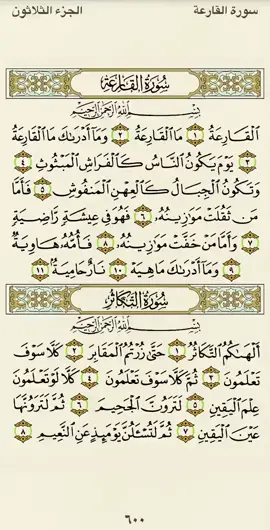 سورة القارعة
الجزء الثلاثون
سُورَةُ القَارِعَةِ
بِسْمِ اللَّهِ الرَّحْمَٰنِ الرَّحِيمِ
الْقَارِعَةُ ١ مَا الْقَارِعَةُ ٢ وَمَا أَدْرَىٰكَ مَا الْقَارِعَةُ
٣ يَوْمَ يَكُونُ النَّاسُ كَالْفَرَاشِ الْمَبْثُوثِ ٤
وَتَكُونُ الْجِبَالُ كَالْعِهْنِ الْمَنفُوشِ ٥ فَأَمَّا
مَن ثَقُلَتْ مَوَٰزِينُهُۥ ٦ فَهُوَ فِي عِيشَةٍ رَّاضِيَةٍ
٧ وَأَمَّا مَنْ خَفَّتْ مَوَٰزِينُهُۥ ٨ فَأُمُّهُۥ هَاوِيَةٌ
٩ وَمَا أَدْرَىٰكَ مَا هِيَهْ ١٠ نَارٌ حَامِيَةٌۢ ١١
سُورَةُ التَّكَاثُرِ
بِسْمِ اللَّهِ الرَّحْمَٰنِ الرَّحِيمِ
أَلْهَىٰكُمُ التَّكَاثُرُ ١ حَتَّىٰ زُرْتُمُ الْمَقَابِرَ ٢ كَلَّا سَوْفَ
تَعْلَمُونَ ٣ ثُمَّ كَلَّا سَوْفَ تَعْلَمُونَ ٤ كَلَّا لَوْ تَعْلَمُونَ
عِلْمَ الْيَقِينِ ٥ لَتَرَوُنَّ الْجَحِيمَ ٦ ثُمَّ لَتَرَوُنَّهَا
عَيْنَ الْيَقِينِ ٧ ثُمَّ لَتُسْـَٔلُنَّ يَوْمَئِذٍ عَنِ النَّعِيمِ ٨
٦٠٠